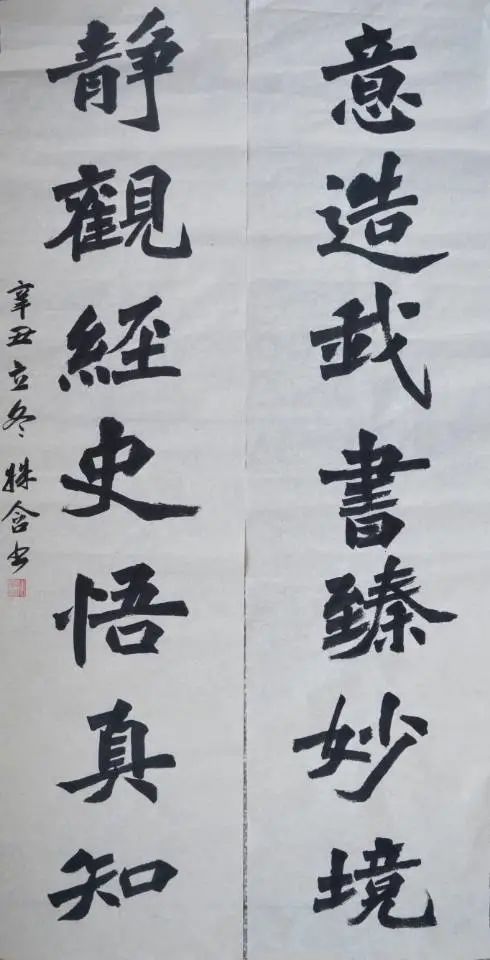 意造我書臻妙境
靜觀經史悟真知
辛丑立冬 姝含书